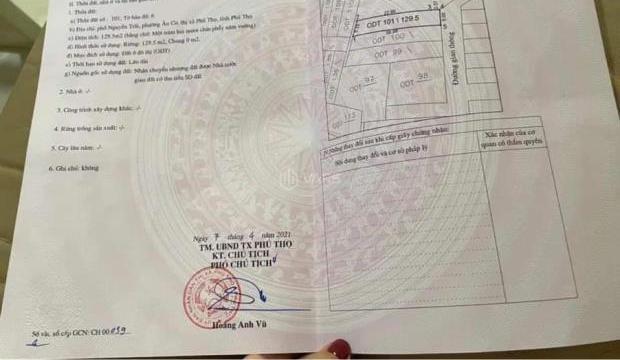 II. Thửa đất, nhà ở và tài
1. Thửa đất:
a) Thửa đất số: 101, Tờ bản đồ: 6
b) Địa chỉ: phố Nguyễn Trãi, phường Âu Cơ, thị xã Phú Thọ, tỉnh Phú Thọ
c) Diện tích: 129.5m2 (bằng chữ: Một trăm hai mươi chín phẩy năm mét vuông)
d) Hình thức sử dụng: Riêng: 129.5 m2, Chung 0 m2.
đ) Mục đích sử dụng: Đất ở đô thị (ODT)
e) Thời hạn sử dụng đất: Lâu dài
g) Nguồn gốc sử dụng đất: Nhận chuyển nhượng đất được Nhà nước
giao đất có thu tiền SD đất
2. Nhà ở: -/-
3. Công trình xây dựng khác: -/-
4. Rừng trồng sản xuất: -/-
5. Cây lâu năm: -/-
6. Ghi chú: không
Ngày 7 tháng 4 năm 2021
TM. UBND TX PHÚ THỌ
KT. CHỦ TỊCH
PHÓ CHỦ TỊCH
Hoàng Anh Vũ
Số vào sổ cấp GCN: CH 00059
ODT 101 129.5
ODT 100
ODT 99
ODT 92
ODT 98
Đường giao thông
IV. Những thay đổi sau khi cấp giấy chứng nhận
Nội dung thay đổi và cơ sở pháp lý
Xác nhận của cơ
quan có thẩm quyền